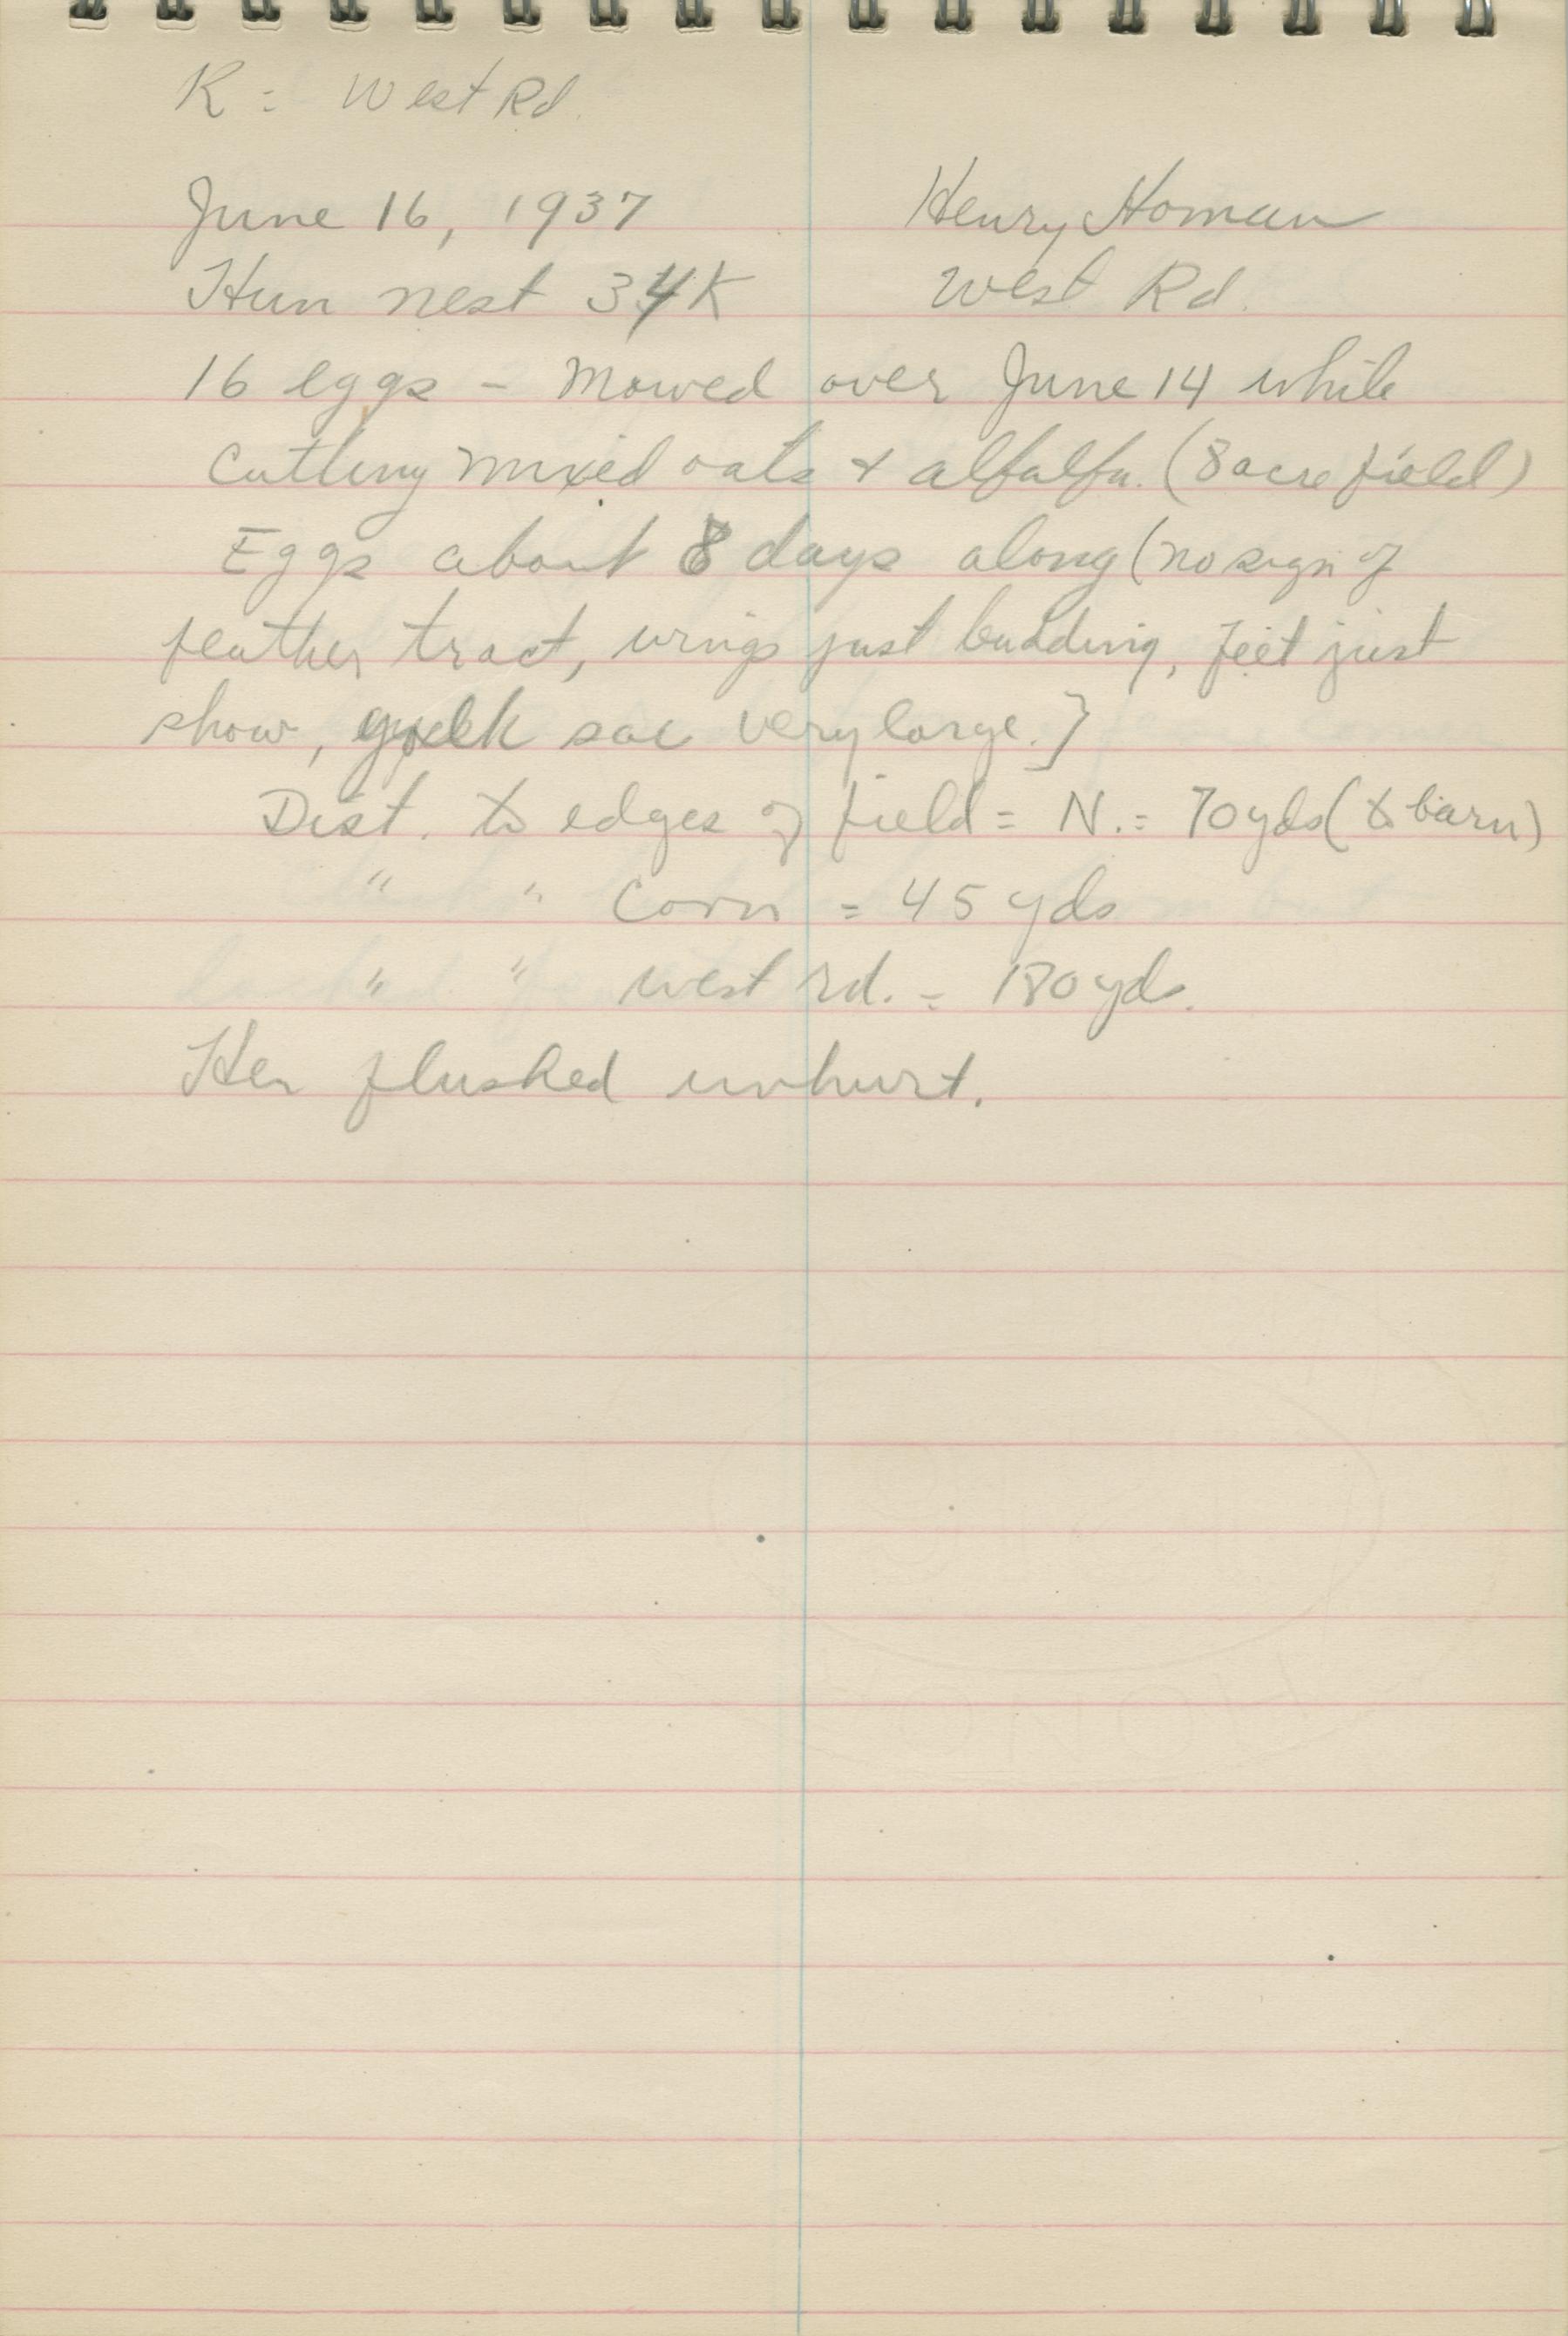 K = West Rd.
June 16, 1937 Henry Homan
Hun nest 34K West Rd.
16 eggs - Mowed over June 14 while
cutting mixed oats & alfalfa. (8 acre field)
Eggs about 8 days along (no sign of
feather tract, wings just budding, feet just
show, sac very large.)
Dist. to edges of field = N. = 70 yds (to barn)
" " Corn = 45 yds
" " west rd. = 180 yds.
Hen flushed unhurt.